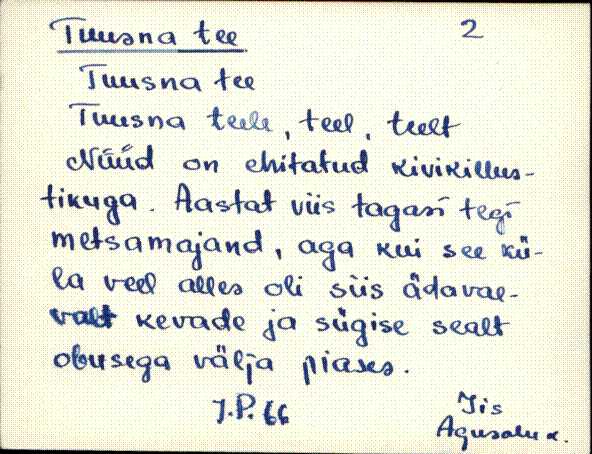 Tuusna tee 2
Tuusna tee
Tuusna teele, teel, teelt
Nüüd on ehitatud kivikillus-
tikuga. Aastat viis tagasi tegi
metsamajand, aga kui see kü-
la veel alles oli siis ädavae-
valt kevade ja sügise sealt
obusega välja piases.
J.P. 66 Iis
Agusalu k.